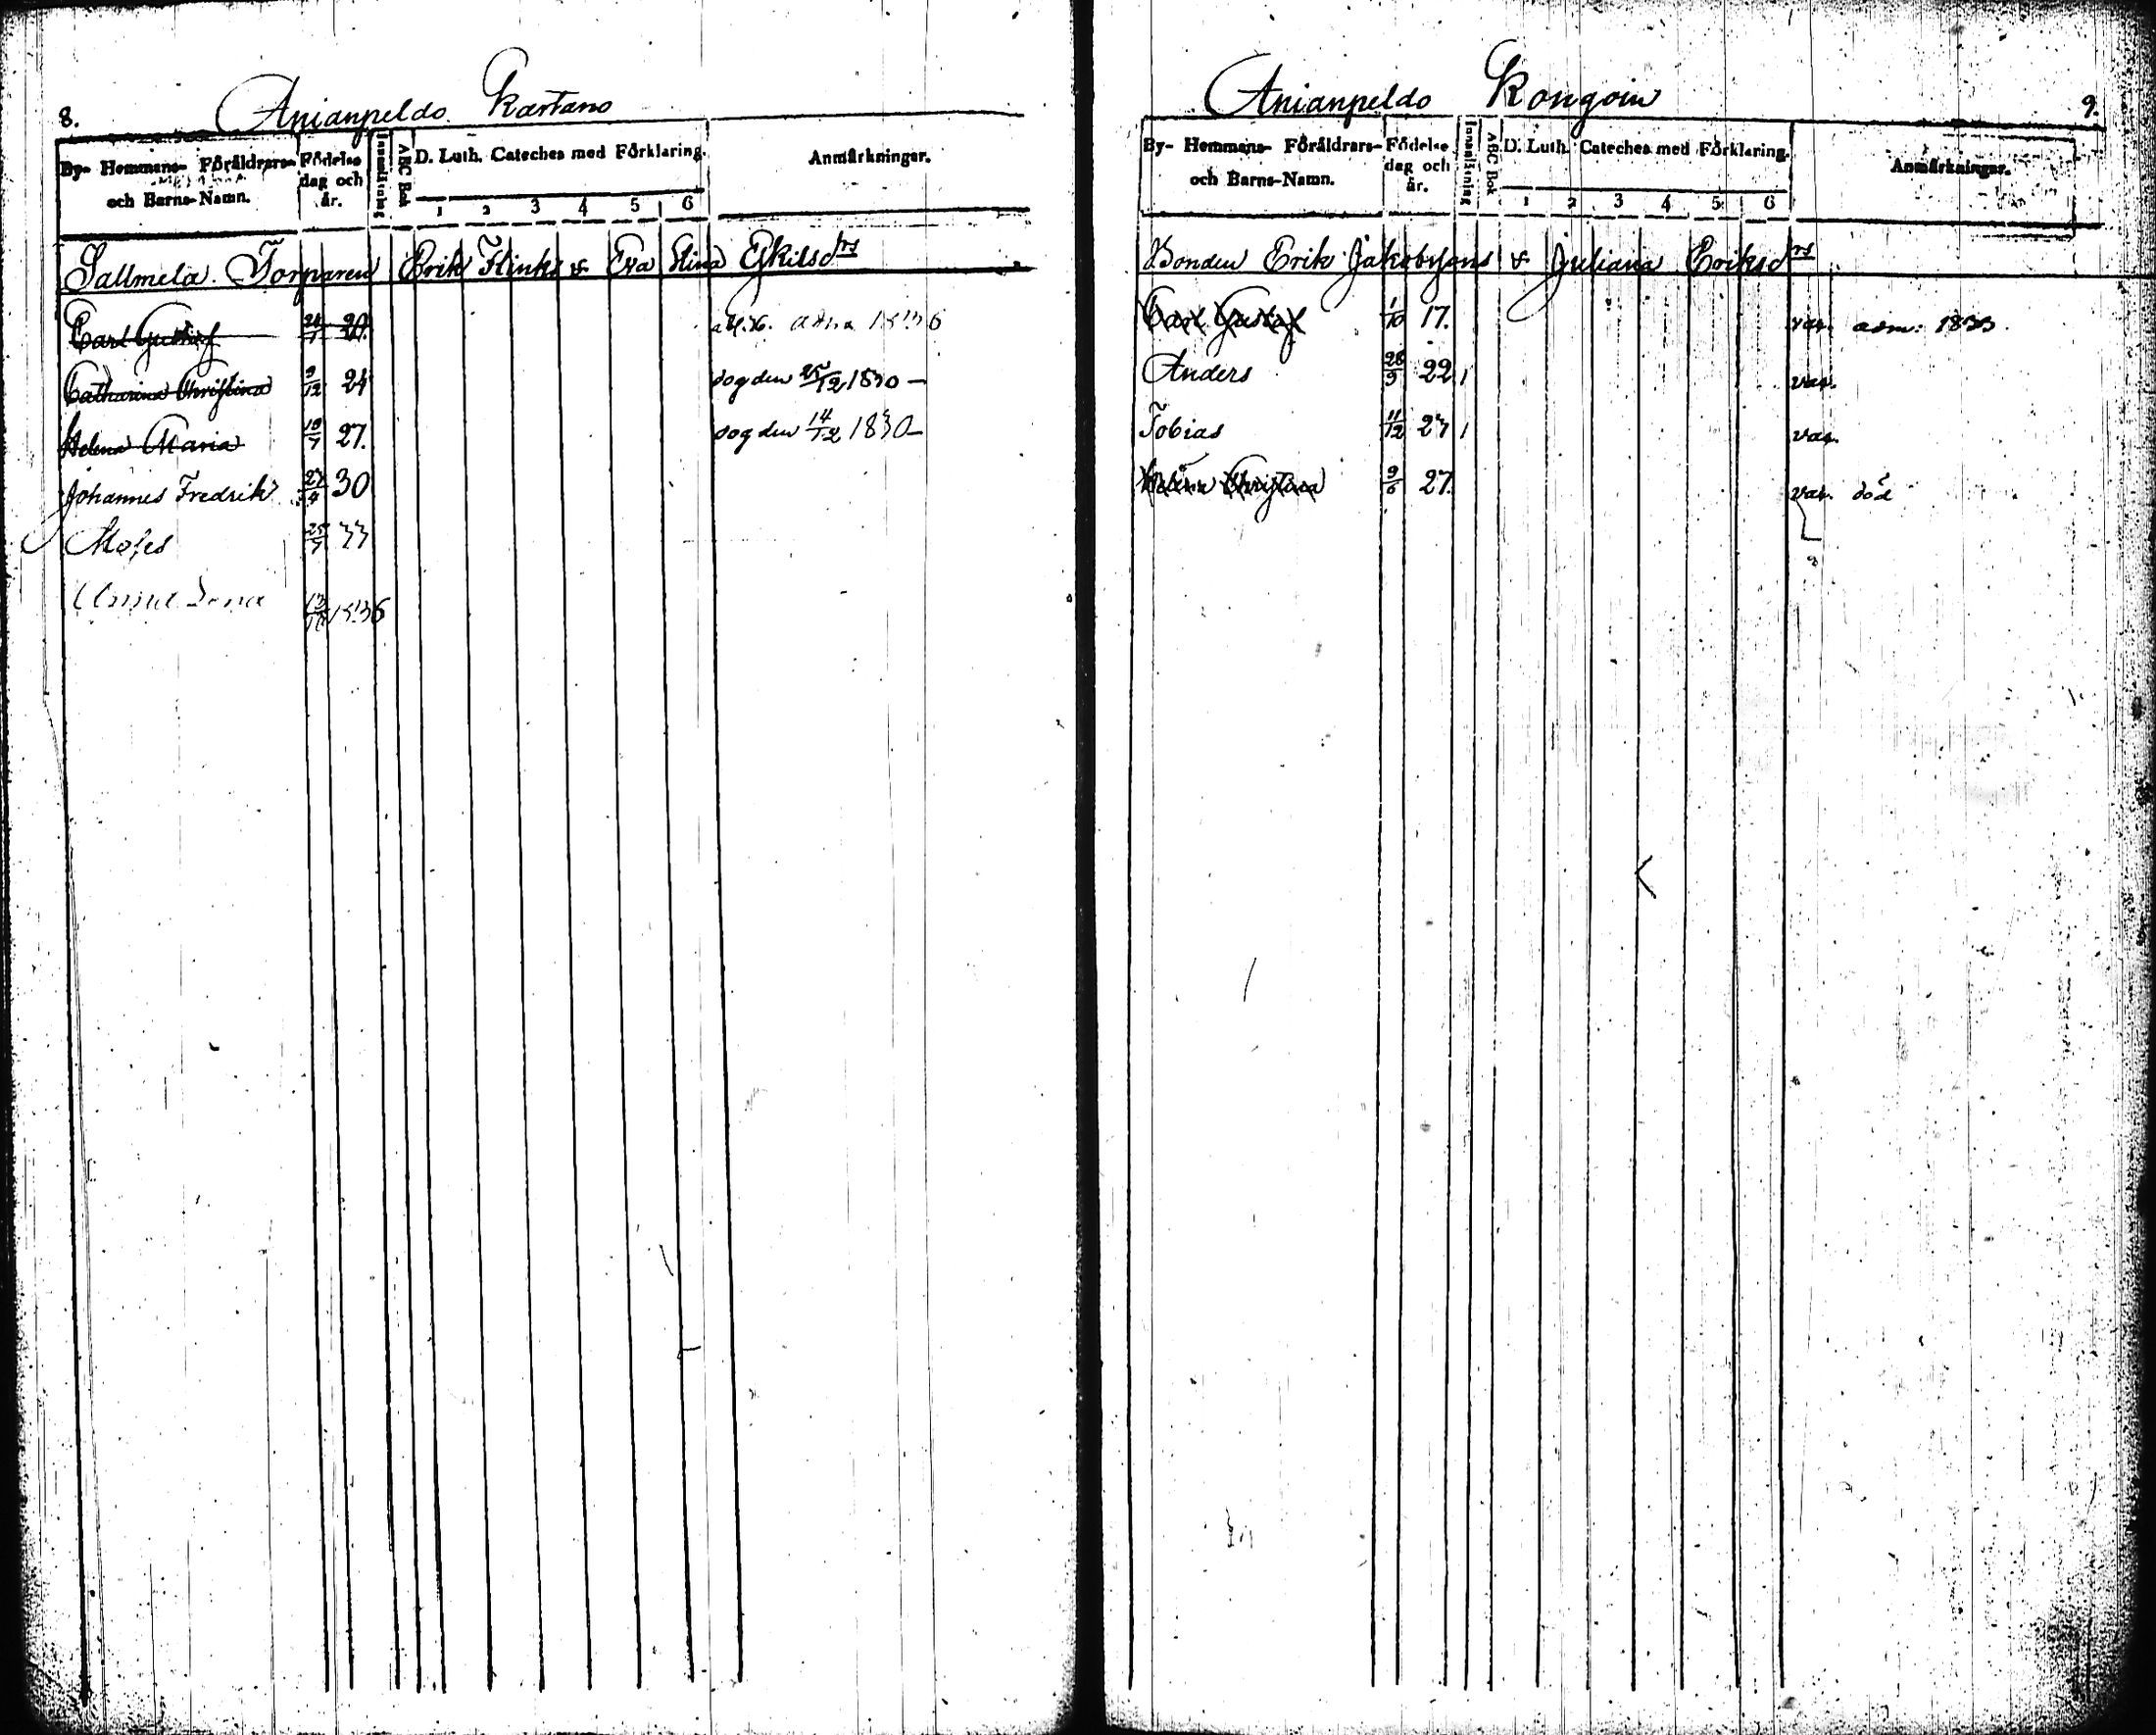 8.
Anianpeldo Kartano
By- Hemmans- Föräldrars- och Barns-Namn.
Födelse dag och år.
Innanläsning
ABC Bok
D. Luth. Cateches med Förklaring.
1 2 3 4 5 6
Anmärkningar.
Sallmela. Torparen Erik Flink & Eva Stina Eskilsdrs
Carl Gustaf 20. 1836
Catharina Christina 9/12 24 dog den 25/12 1830 –
Helena Maria 27. dog den 14/12 1830 –
Johannes Fredrik 30
Moses 25/7 33
1836
Anianpeldo Kongoin
9.
By- Hemmans- Föräldrars- och Barns-Namn.
Födelse dag och år.
Innanläsning
ABC Bok
D. Luth. Cateches med Förklaring.
1 2 3 4 5 6
Anmärkningar.
Bonden Erik Jakobsons & Juliana Eriksdrs
Carl Gustaf 1/10 17. var. adm: 1833
Anders 28/9 22 var.
Tobias 11/12 var.
Christina 9/6 27. var. död